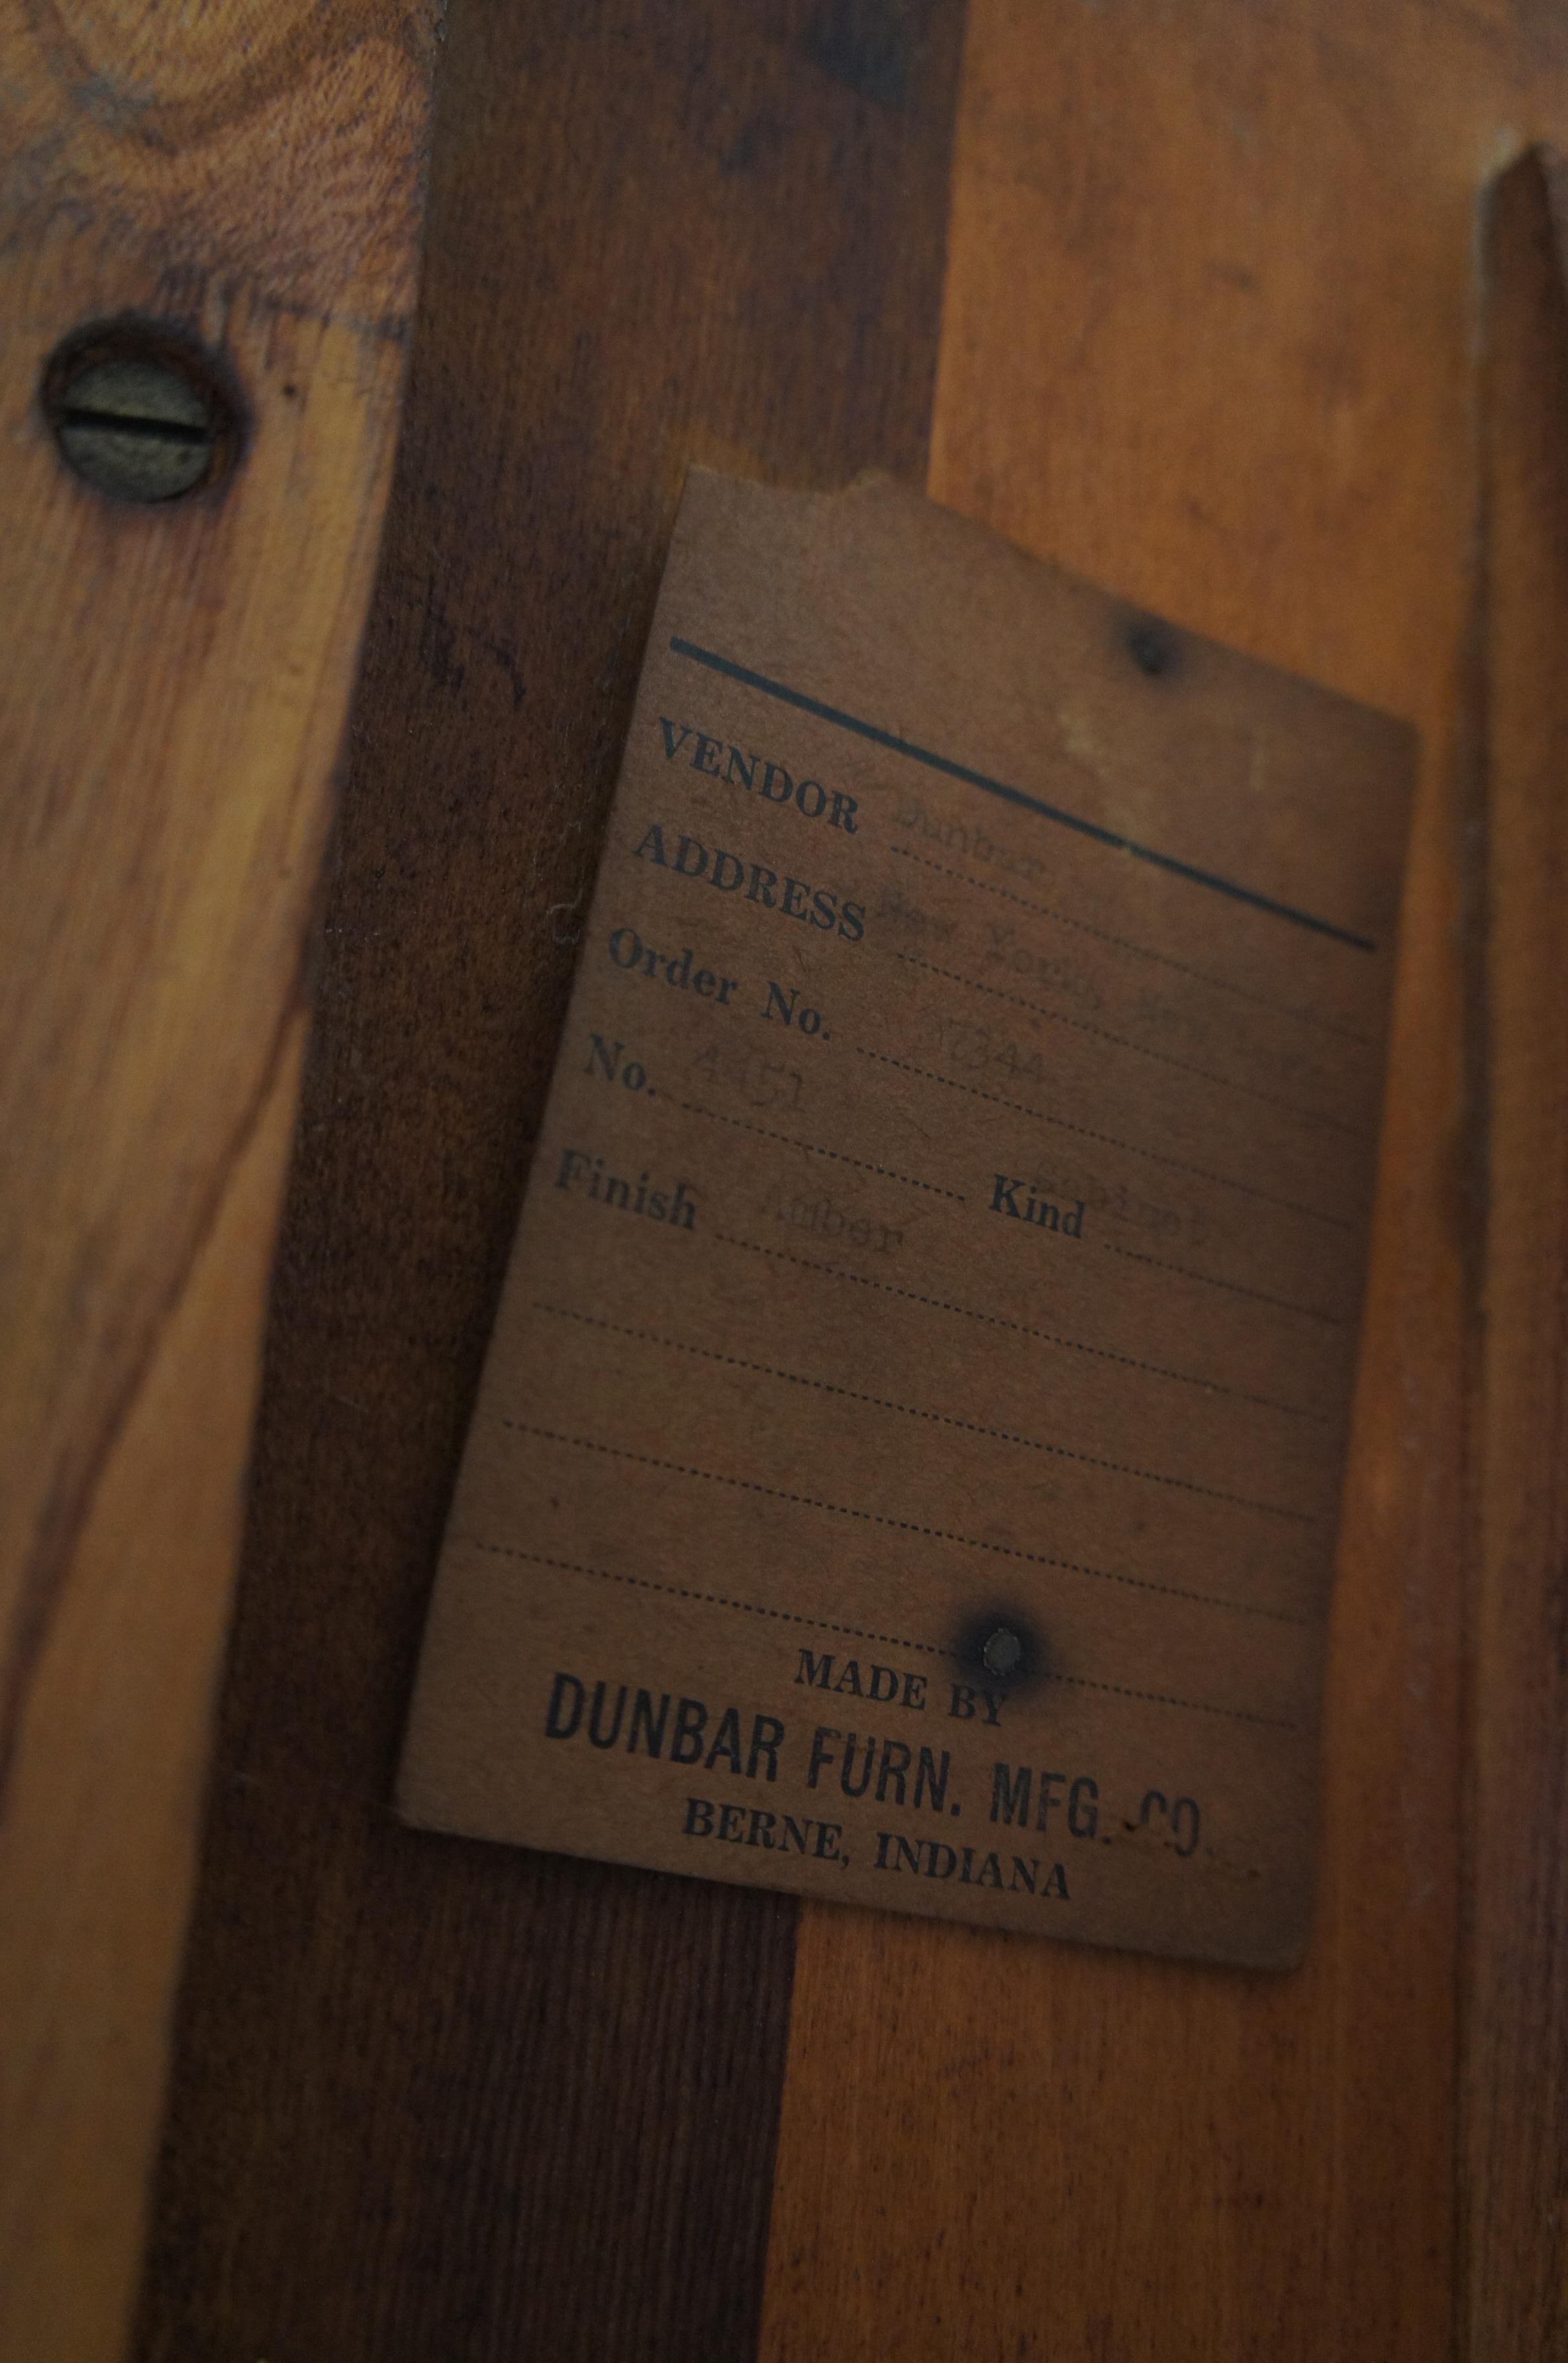 VENDOR Dunbar
ADDRESS New York, New York
Order No. 17344
No. Kind Cabinet
Finish Amber
MADE BY
DUNBAR FURN. MFG. CO.
BERNE, INDIANA